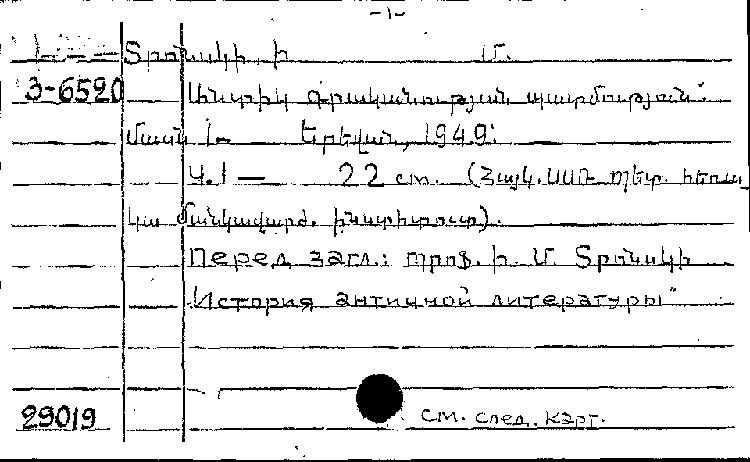 -1-
Տրոնսկի, Ի Մ.
3-6520 Անտիկ գրականության պատմություն:
Մասն I- Երեվան, 1949:
Ч.I — 22 см. (Հայկ. ՍՍՌ Պետ. հեռա
կա մանկավարժ. ինստիտուտ).
Перед загл.: պրոֆ. Ի. Մ. Տրոնսկի
"История античной литературы"
29019 см. след. карт.